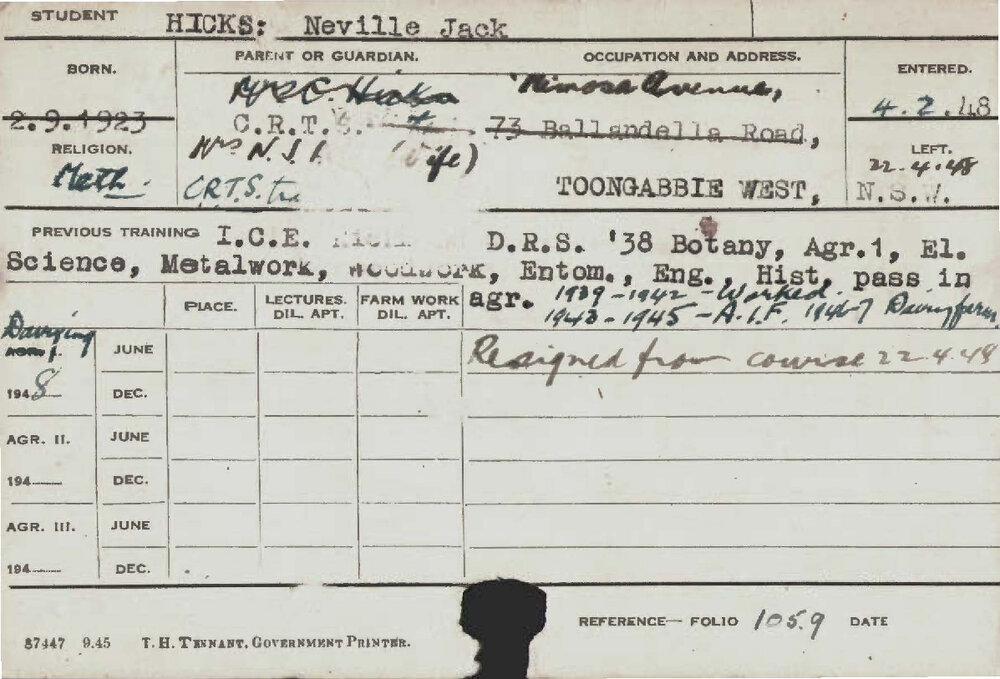 STUDENT HICKS: Neville Jack
BORN. PARENT OR GUARDIAN. OCCUPATION AND ADDRESS. ENTERED.
Mrs C. Hicks Mimosa Avenue, 4.2.48
2.9.1923 C.R.T.S. 73 Ballandella Road,
RELIGION. Mrs N.J. (Wife) LEFT.
22.4.48
Meth. C.R.T.S. TOONGABBIE WEST, N.S.W.
PREVIOUS TRAINING I.C.E. D.R.S. '38 Botany, Agr.1, El.
Science, Metalwork, Woodwork, Entom., Eng., Hist, pass in
agr. 1939-1942 - Worked.
1942-1945 - A.I.F. 1946-7 Dairy farm
PLACE. LECTURES. DIL. APT. FARM WORK DIL. APT.
Dairying
AGR. I. JUNE Resigned from course 22.4.48
1948 DEC.
AGR. II. JUNE
194 DEC.
AGR. III. JUNE
194 DEC.
REFERENCE— FOLIO 1059 DATE
87447 9.45 T. H. TENNANT, GOVERNMENT PRINTER.